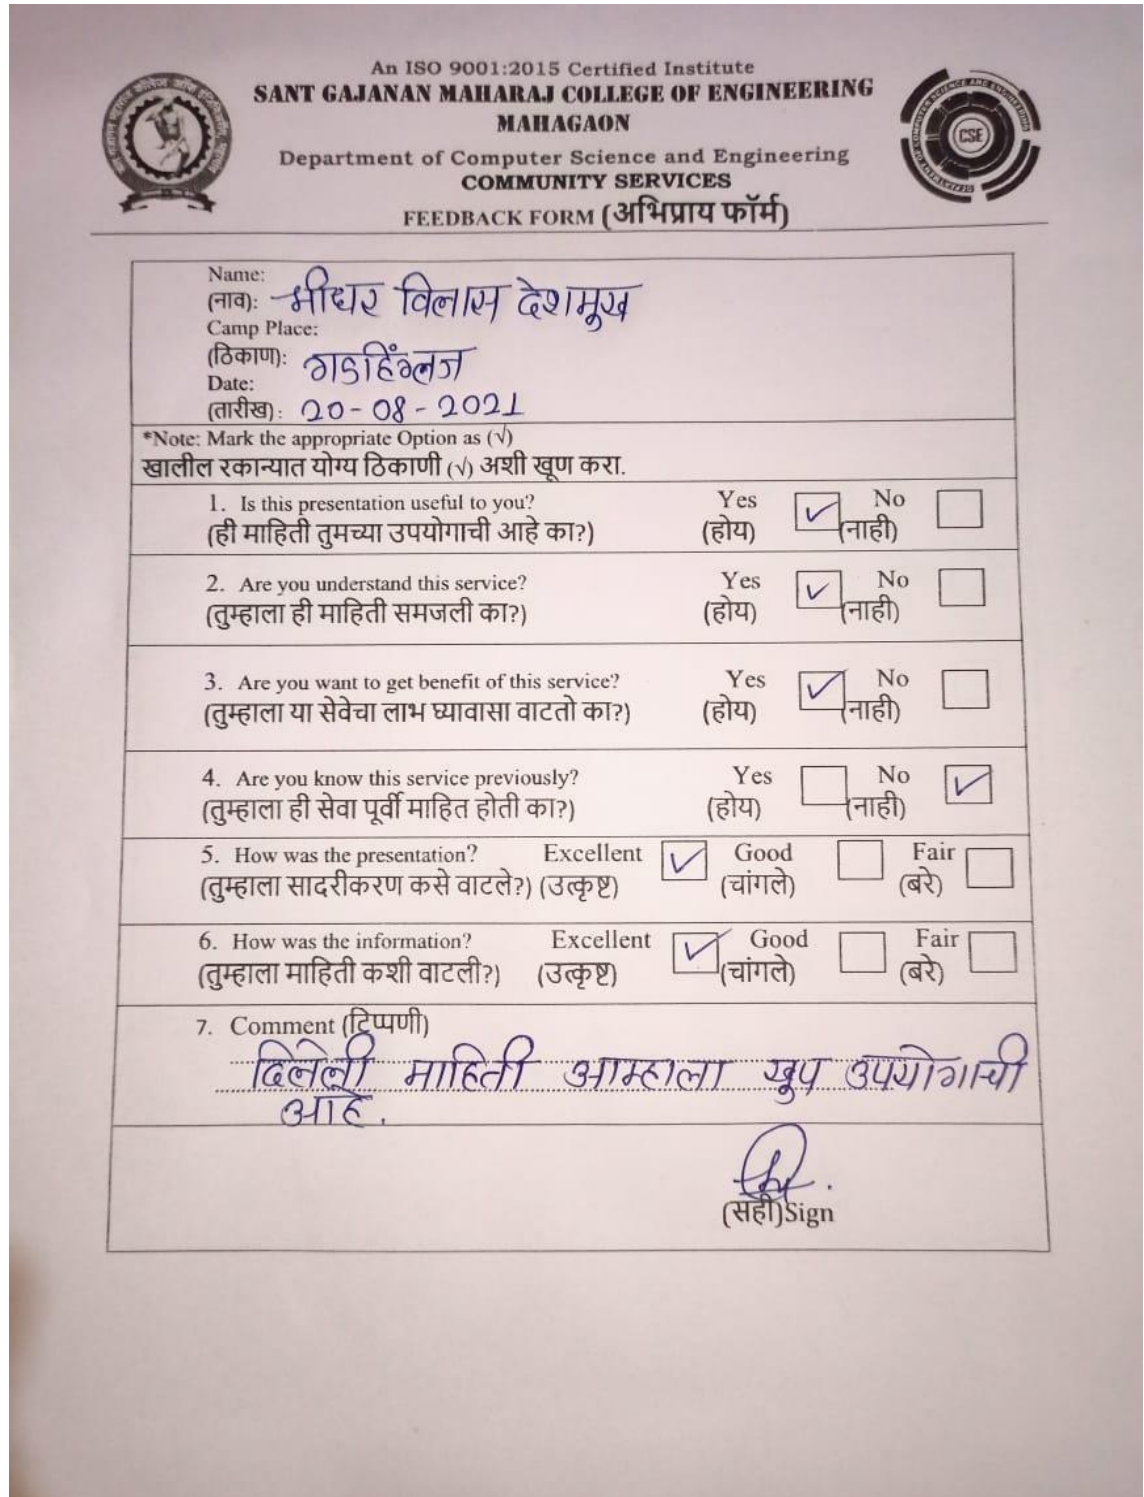 An ISO 9001:2015 Certified Institute
SANT GAJANAN MAHARAJ COLLEGE OF ENGINEERING
MAHAGAON
Department of Computer Science and Engineering
COMMUNITY SERVICES
FEEDBACK FORM (अभिप्राय फॉर्म)
CSE
Name:
(नाव): विलास देशमुख
Camp Place:
(ठिकाण): गडहिंग्लज
Date:
(तारीख): 20-08-2021
*Note: Mark the appropriate Option as (√)
खालील रकान्यात योग्य ठिकाणी (√) अशी खूण करा.
1. Is this presentation useful to you? Yes ✓ No
(ही माहिती तुमच्या उपयोगाची आहे का?) (होय) (नाही)
2. Are you understand this service? Yes ✓ No
(तुम्हाला ही माहिती समजली का?) (होय) (नाही)
3. Are you want to get benefit of this service? Yes ✓ No
(तुम्हाला या सेवेचा लाभ घ्यावासा वाटतो का?) (होय) (नाही)
4. Are you know this service previously? Yes No ✓
(तुम्हाला ही सेवा पूर्वी माहित होती का?) (होय) (नाही)
5. How was the presentation? Excellent ✓ Good Fair
(तुम्हाला सादरीकरण कसे वाटले?) (उत्कृष्ट) (चांगले) (बरे)
6. How was the information? Excellent ✓ Good Fair
(तुम्हाला माहिती कशी वाटली?) (उत्कृष्ट) (चांगले) (बरे)
7. Comment (टिप्पणी)
दिलेली माहिती आम्हाला खुप उपयोगाची
आहे.
(सही)Sign